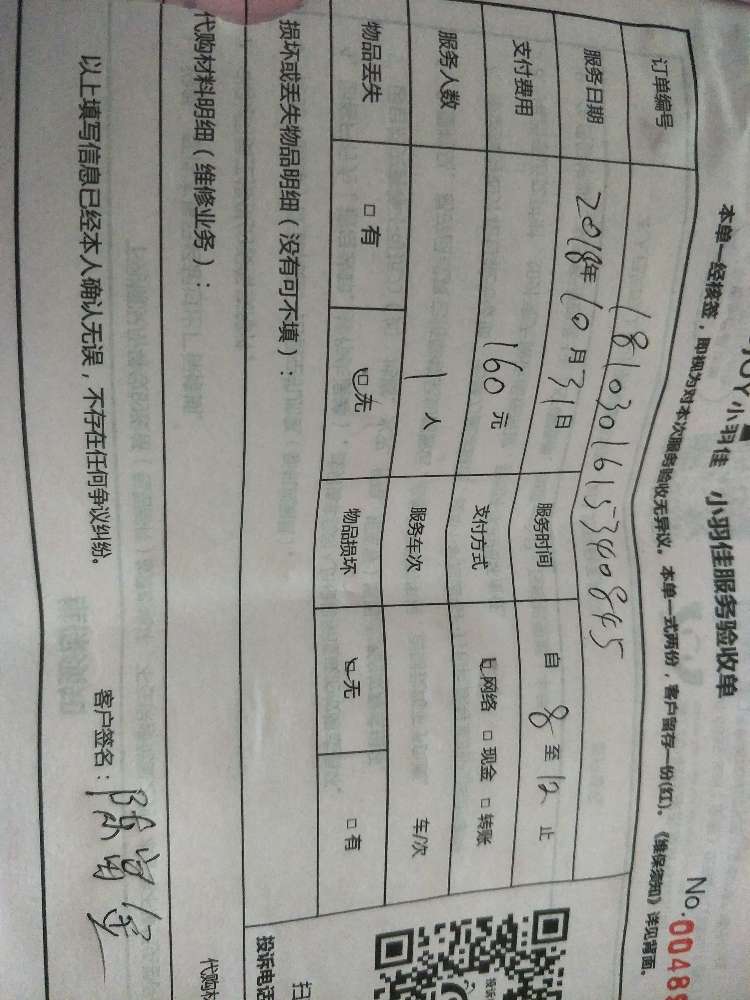 小羽佳 小羽佳服务验收单
No.0048
本单一经核签，即视为对本次服务验收无异议。本单一式两份，客户留存一份(红)。《维保须知》详见背面。
订单编号 1810301615340845
服务日期 2018年10月31日 服务时间 自 8 至 12 止
支付费用 160元 支付方式 网络 □ 现金 □ 转账
服务人数 1 人 服务车次 车/次
物品丢失 □ 有 无 物品损坏 无 □ 有
损坏或丢失物品明细（没有可不填）：
代购材料明细（维修业务）：
以上填写信息已经本人确认无误，不存在任何争议纠纷。 客户签名：
投诉电话